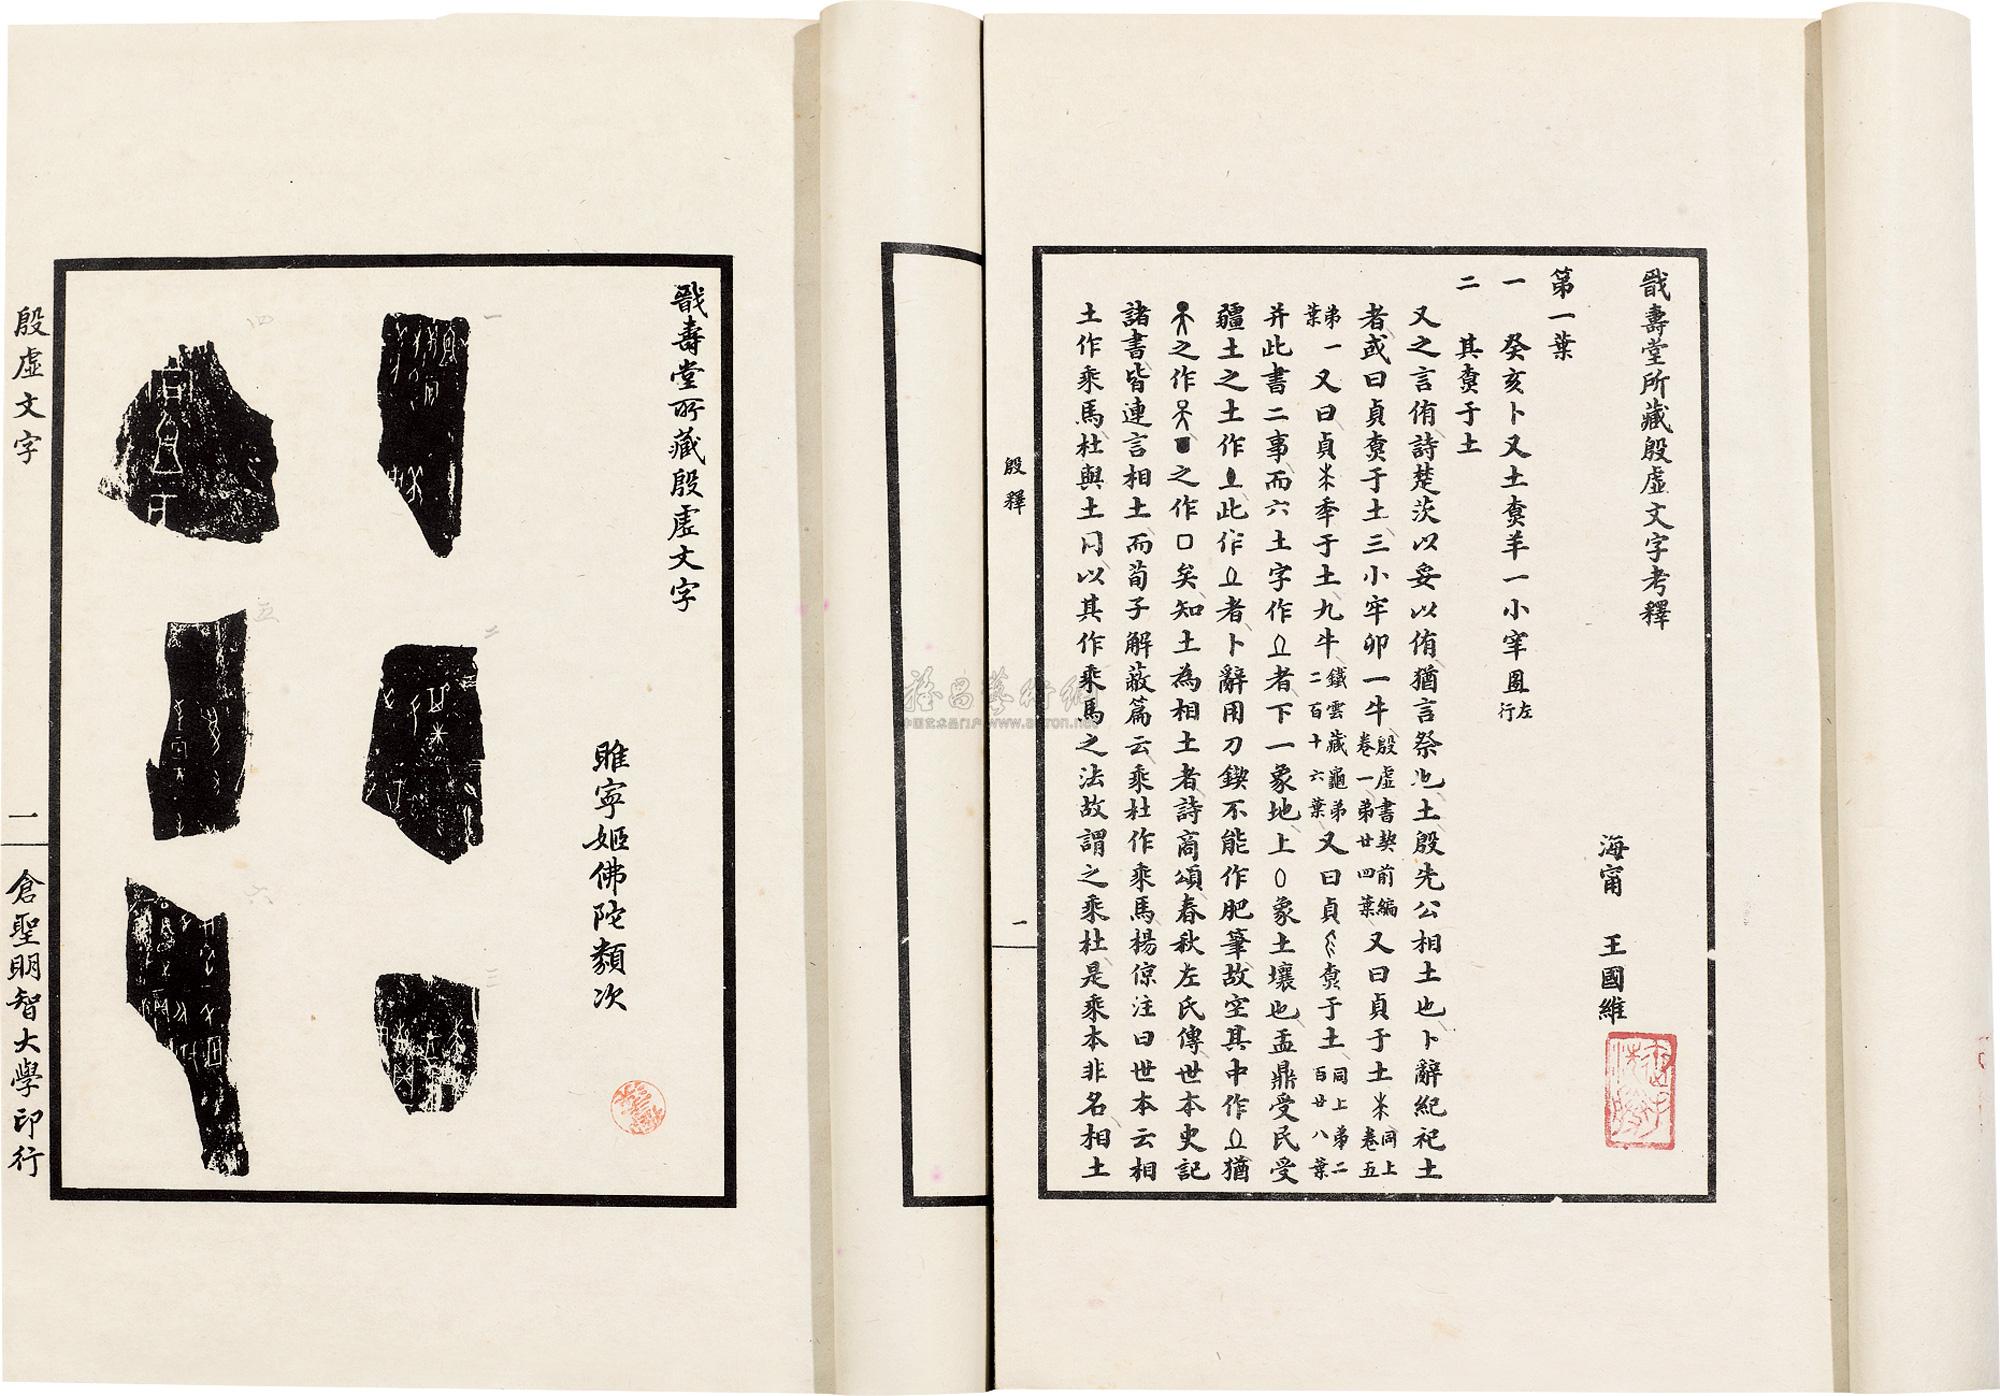 戩壽堂所藏殷虛文字考釋
海甯 王國維
第一葉
一 癸亥卜又土尞羊一小宰圂左行
二 其尞于土
又之言侑詩楚茨以妥以侑猶言祭也土殷先公相土也卜辭紀祀土
者或曰貞尞于土三小牢卯一牛殷虛書契前編卷一弟廿四葉又曰貞于土米同上卷五
弟一葉又曰貞米秊于土九牛鐵雲藏龜弟二百十六葉又曰貞尞于土同上弟二百廿八葉
并此書二事而六土字作者下一象地上象土壤也盂鼎受民受
疆土之土作此作者卜辭用刀鍥不能作肥筆故空其中作猶
之作之作口矣知土為相土者詩商頌春秋左氏傳世本史記
諸書皆連言相土而荀子解蔽篇云乘杜作乘馬楊倞注曰世本云相
土作乘馬杜與土同以其作乘馬之法故謂之乘杜是乘本非名相土
殷釋
一
戩壽堂所藏殷虛文字
睢寧姬佛陀類次
一
二
三
四
五
六
殷虛文字
一
倉聖明智大學印行